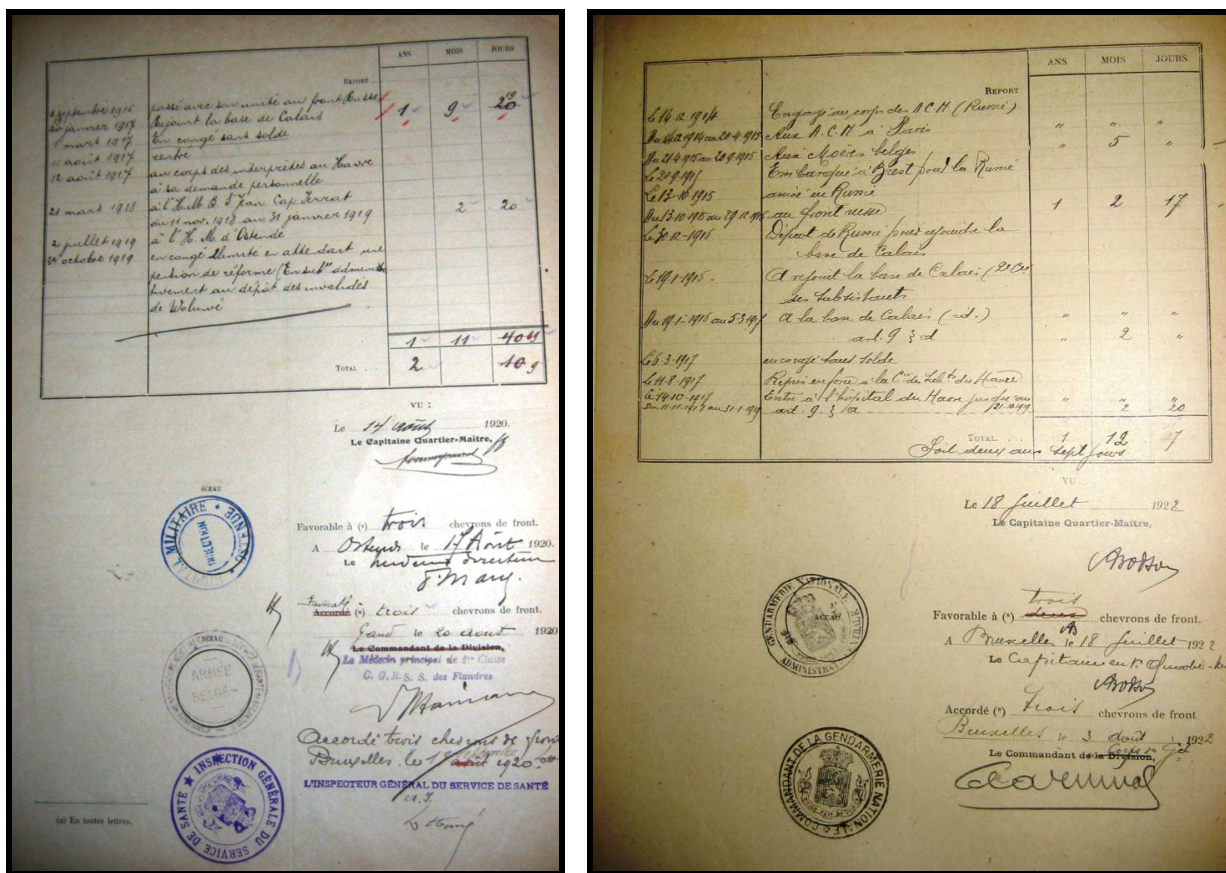 ANS MOIS JOURS
REPORT
septembre 1916 passé avec son unité au front Russe 1 9 20 19
20 janvier 1917 Rejoint la base de Calais
mars 1917 En congé sans solde
11 août 1917 rentré
12 août 1917 au corps des interprètes au Havre
à sa demande personnelle
21 mars 1918 à l'H.M.B. St Jean Cap Ferrat
du 11 nov. 1918 au 31 janvier 1919 2 20
2 juillet 1919 à l'H. M. d'Ostende
octobre 1919 en congé illimité en attendant une
pension de réforme (En sub. administrativement au dépôt des invalides
de Woluwé
1 11 40
TOTAL . . 2 10 9
VU :
Le 14 août 1920.
Le Capitaine Quartier-Maître,
SCEAU
HOPITAL MILITAIRE * OSTENDE *
DIRECTION
Favorable à (a) trois chevrons de front.
A Ostende le 17 Août 1920.
Le médecin directeur
Favorable
Accordé (a) trois chevrons de front.
Gand le 20 août 1920
Le Commandant de la Division,
Le Médecin principal de 1re Classe
C. G. R. S. S. des Flandres
SCEAU
ARMÉE
BELGE
Accordé trois chevrons de front
Bruxelles le 1 1920.
L'INSPECTEUR GÉNÉRAL DU SERVICE DE SANTÉ
★ INSPECTION GÉNÉRALE DU SERVICE DE SANTÉ
(a) En toutes lettres.
ANS MOIS JOURS
REPORT
Le 14.12.1914 Engagé au corps des A.C.M (Russie)
Du 14.12.1914 au 20-4-1915 Aux A.C.M à Paris " " "
Du 21.4.915 au 20.9.1915 Aux Moëres belges " 5 "
Le 20-9-1915 Embarqué à Brest pour la Russie
Le 13-10-1915 arrivé en Russie
Du 13.10.1915 au 29.12.1916 au front russe 1 2 17
Le 30.12-1916 Départ de Russie pour rejoindre la
base de Calais
Le 19-1-1915 A rejoint la base de Calais (2e Cie
des Subsistants
Du 19-1-1916 au 5-3-191 A la base de Calais (id.) " " "
art. 9 § d " 2 "
Le 6-3-1917 en congé sans solde
Le 11-8-1917 Repris en force à la Cie des Subts du Havre
Le 14-10-1917 Entré à l'hôpital du Havre jusqu'au " " "
art. 9. § a 2 20
TOTAL . . 1 12 7
Soit deux ans sept jours
VU
Le 18 Juillet 1922
Le Capitaine Quartier-Maître,
GENDARMERIE NATIONALE
SCEAU
ADMINISTRAT
trois
Favorable à (a) deux chevrons de front.
A Bruxelles le 18 Juillet 1922
Le Capitaine
Accordé (a) trois chevrons de front
Bruxelles le 3 août 1922
Le Commandant de la Division,
COMMANDANT DE LA GENDARMERIE NATIONALE